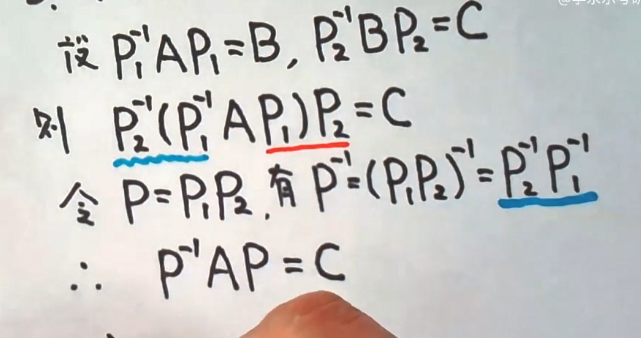 设 P₁⁻¹AP₁=B, P₂⁻¹BP₂=C
则 P₂⁻¹(P₁⁻¹AP₁)P₂=C
令 P=P₁P₂, 有 P⁻¹=(P₁P₂)⁻¹=P₂⁻¹P₁⁻¹
∴ P⁻¹AP=C